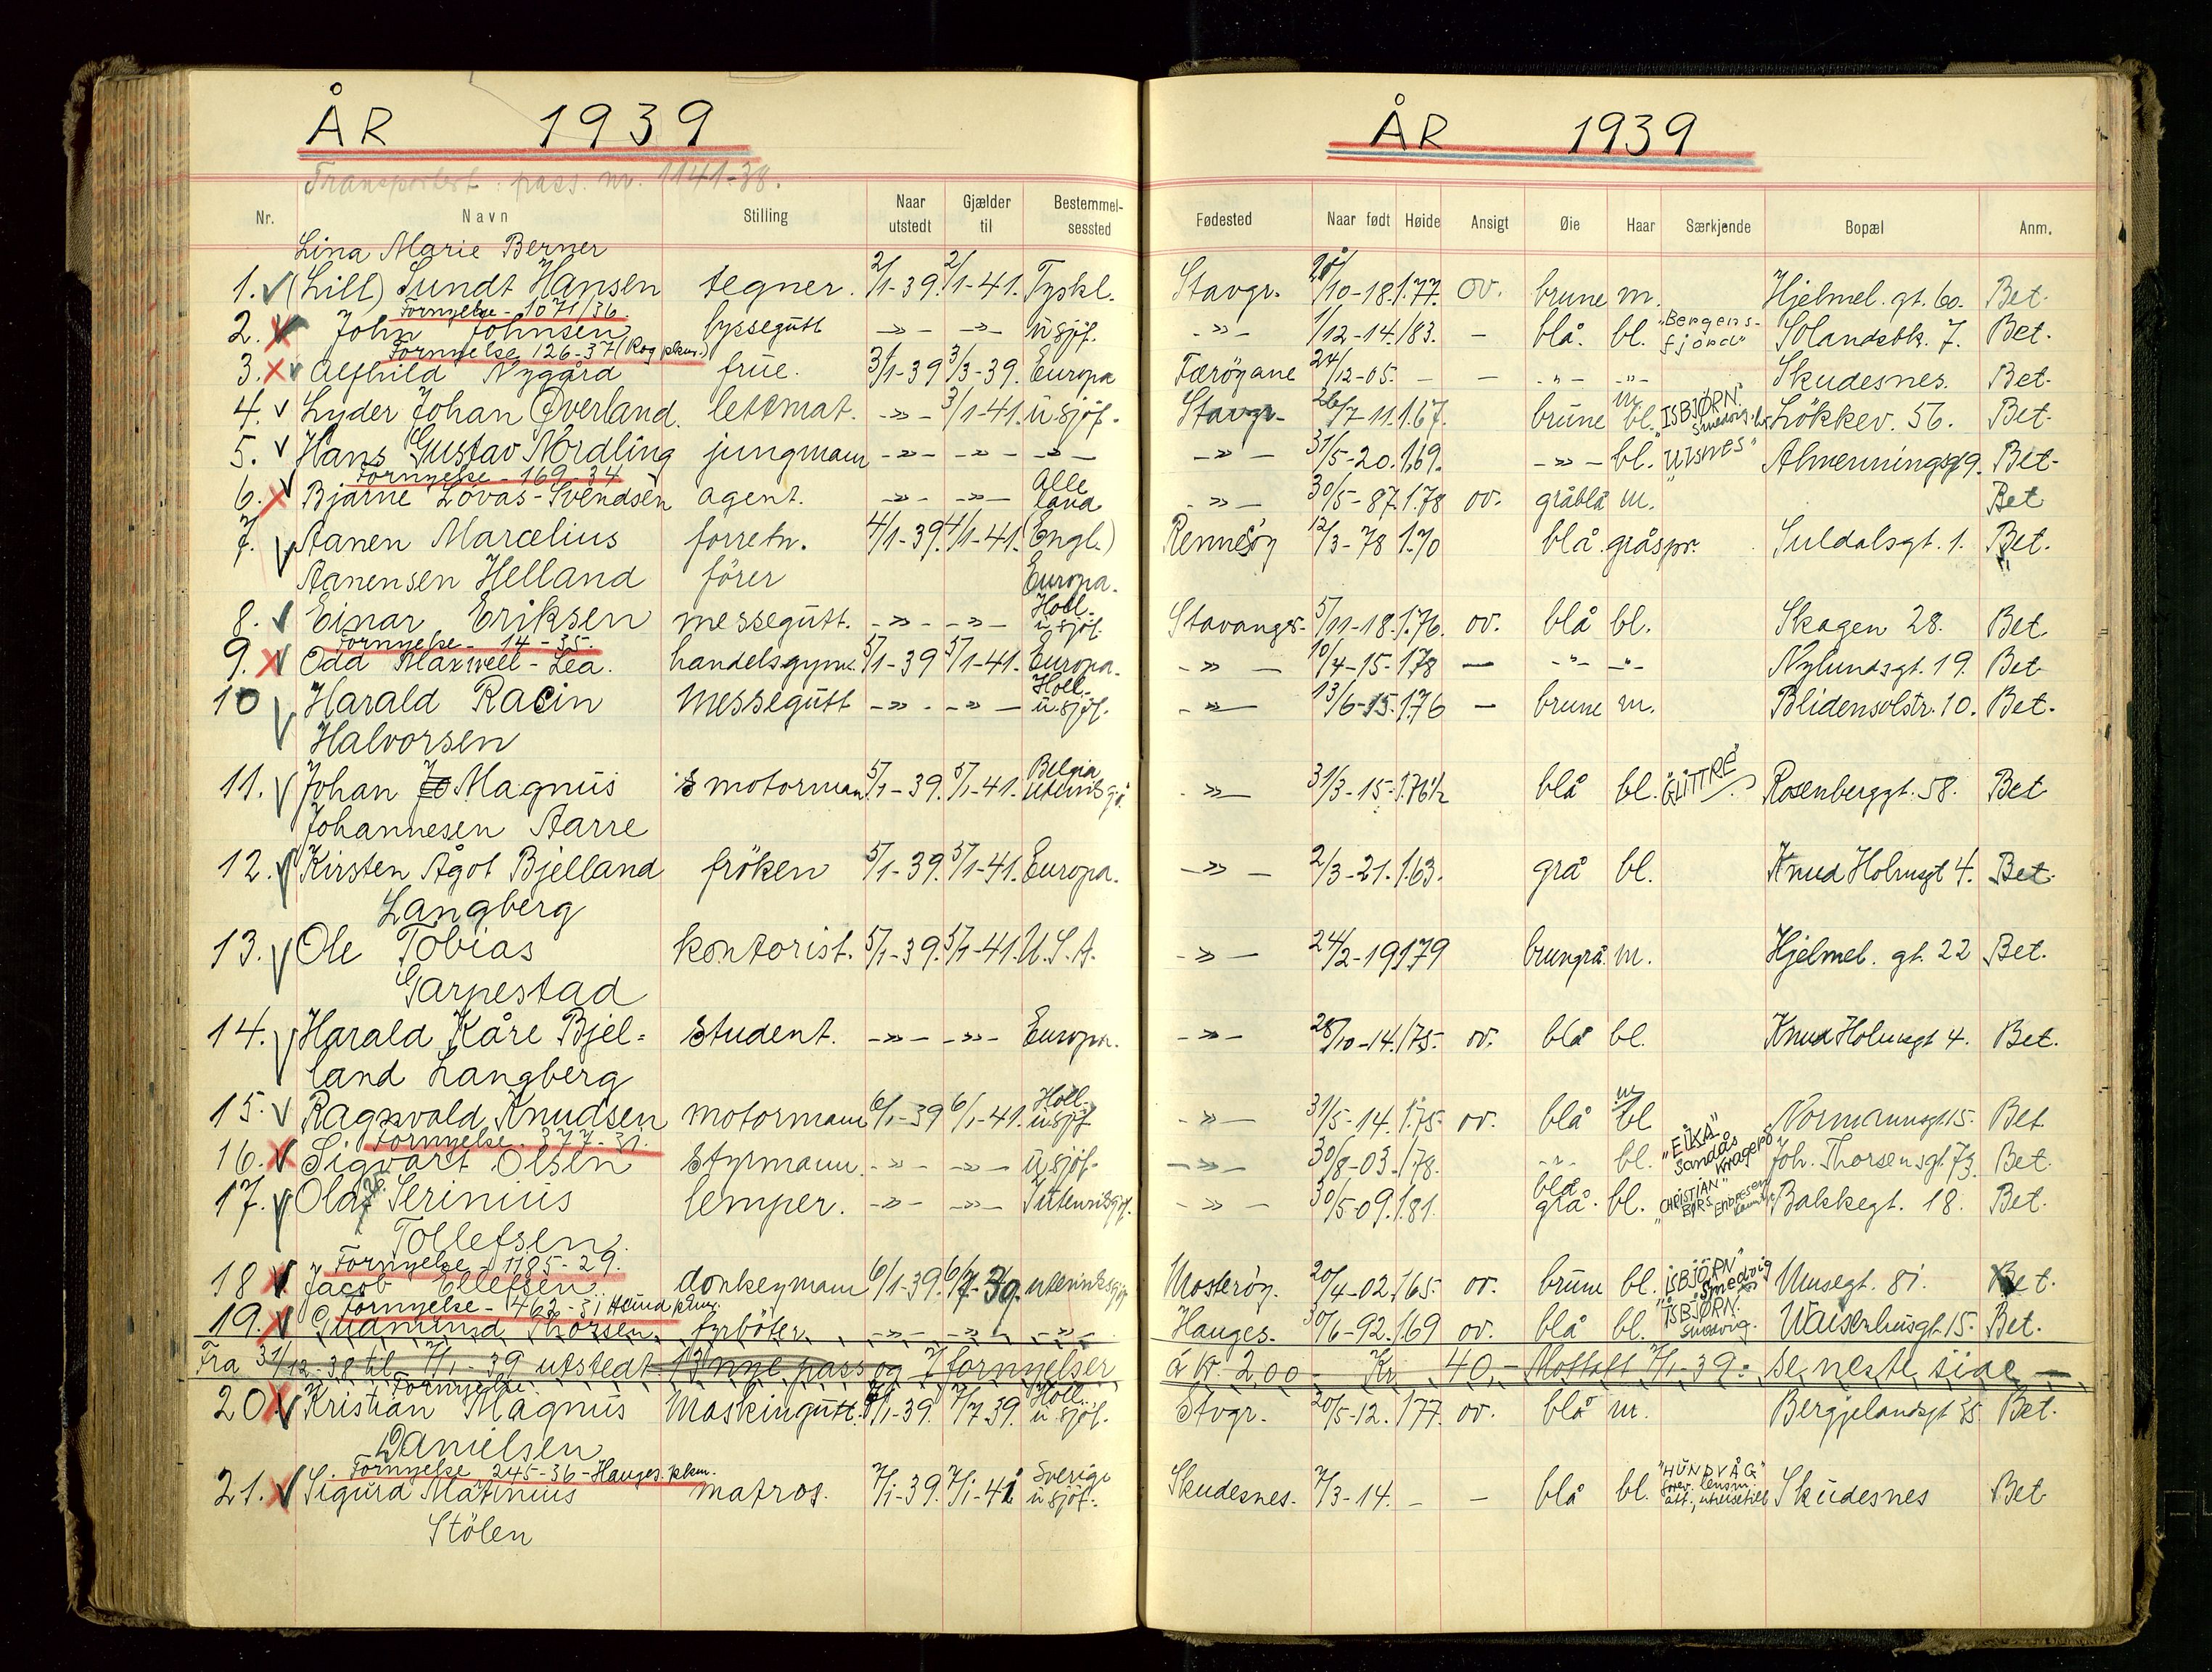 ÅR 1939
Transportert: pass. nr. 1141-38.
Nr. Navn Stilling Naar utstedt Gjælder til Bestemmelsessted
Lina Marie Berner
1. (Lill) Sundt Hansen tegner. 2/1-39. 2/1-41. Tyskl.
Fornyelse - 1071/36
2. John Johnsen byssegutt -»- -»- u sjöf.
Fornyelse 126-37 (Rog pkm.)
3. Alfhild Nygård frue. 3/1-39 3/3-39. Europa
4. Lyder Johan Överland. letmat. -»- 3/1-41. u sjöf.
5. Hans Gustav Nordling jungmann -»- -»- -»-
Fornyelse - 169-34
6. Bjarne Lövås-Svendsen agent. -»- -»- Alle land
7. Aanen Marcelius forretn. 4/1-39. 4/1-41. (Engl.)
Aanensen Helland förer Europa.
8. Einar Eriksen messegutt. -»- -»- Holl. u sjöf.
Fornyelse - 14-35.
9. Odd Maxwell-Lea. handelsgymn. 5/1-39 5/1-41. Europa.
10 Harald Racin messegutt -»- -»- Holl. u.sjöf.
Halvorsen
11. Johan Jo Magnus motorman 5/1-39. 5/1-41. Belgia
Johannesen Aarre
12. Kirsten Ågot Bjelland fröken 5/1-39. 5/1-41. Europa.
Langberg
13. Ole Tobias kontorist. 5/1-39. 5/1-41. U.S.A.
Garpestad
14. Harald Kåre Bjel- student. -»- -»- Europa.
land Langberg
15. Ragnvald Knudsen motormann 6/1-39 6/1-41. Holl. u sjöf.
Fornyelse. 377-31.
16. Sigvart Olsen styrmann. -»- -»- u sjöf.
17. Olaf Serinius lemper. -»- -»- Utenriksgf.
Tollefsen.
Fornyelse - 1185-29.
18 Jacob Ellefsen. donkeymann 6/1-39. 6/7-39. utenriksgf.
Fornyelse - 462-31 Haugd pkm.
19. Gudmund Thorsen. fyrböter. -»- -»- -»-
Fra 31/12-38 til 7/1-39 utstedt 13 nye pass og 7 fornyelser
Fornyelse.
20. Kristian Magnus Maskingutt. 7/1-39. 7/7 39. Holl. u sjöf.
Danielsen
Fornyelse 245-36-Hauges. pkm.
21. Sigurd Martinius matros. 7/1-39. 7/1-41 Sverige u sjöf.
Stölen
ÅR 1939
Fødested Naar født Høide Ansigt Øie Haar Særkjende Bopæl Anm.
Stavgr. /10-18. 1.77. ov. brune m. Hjelmel. gt. 60. Bet.
-»- 1/12-14. /83. - blå. bl. "Bergensfjord" Solandsbk. 7. Bet.
Færöyane 24/12-05. - - -"- -"- Skudesnes. Bet.
Stavgr. 26/7-11. 1.67. brune m bl. "ISBJØRN." Smedvig Lökkev. 56. Bet.
-»- 31/5-20. 1.69. -»- bl. "UISNES" Almenningsgt 9. Bet.
-»- 30/5-87. 1.78 ov. gråblå m. Bet
Rennesöy 12/3-78 1.70 blå gråspr. Suldalsgt. 1. Bet.
Stavanger. 5/11-18. 1.76. ov. blå bl. Skagen 28. Bet
-»- 10/4-15- 1.78 - -"- -"- Nylundsgt. 19. Bet
-»- 13/6-15. 1.76 - brune m. Blidensolstr. 10. Bet.
-»- 31/3-15- 1.76½ blå bl. "GLITTRE" Rosenberggt. 58. Bet
-»- 2/3-21. 1.63. grå bl. Knud Holmsgt 4. Bet.
-»- 24/2-19 1.79 brungrå. m. Hjelmel. gt. 22 Bet.
-»- 28/10-14. /75. ov. blå bl. Knud Holmsgt 4. Bet.
-»- 31/5-14. 1.75. ov. blå m bl Normannsgt 15. Bet.
-»- 30/8-03. /78. -"- bl. "EIKA" Sandås Kragerö Joh. Thorsensgt. 73. Bet.
-»- 30/5-09. 1.81. blå grå. bl. "CHRISTIAN BORS" Bakkegt. 18. Bet.
Mosteröy. 20/4-02. 1.65. ov. brune bl. "ISBJÖRN" Smedvig Musegt. 81. Bet.
Hauges. 30/6-92. 1.69 ov. blå bl. "ISBJÖRN." Smedvig. Waisenhusgt. 15. Bet.
à kr. 2,00 - Kr. 40,- Mottatt 7/1-39. se neste side -
Stvgr. 20/5-12. 177. ov. blå m. Bergjelandsgt 35. Bet.
Skudesnes. 7/3-14. - - blå bl. "HUNDVÅG" Skudesnes Bet